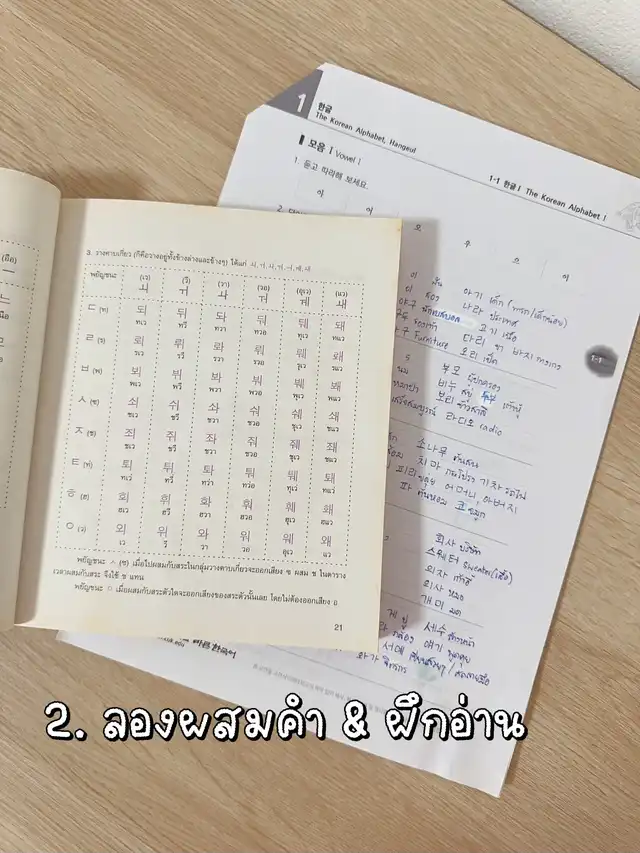 1
한글
The Korean Alphabet, Hangeul
1-1 한글 I The Korean Alphabet I
모음 I Vowel I
1. 듣고 따라해 보세요.
아 어 오 우 으 이
3. วางทาบเกี่ยว (ก็คือวางอยู่ทั้งข้างล่างและข้างๆ) ได้แก่
พยัญชนะ (เว) ㅚ (วี) ㅟ (วา) ㅘ (วอ) ㅝ (อุเว) ㅞ (แว) ㅙ
ㄷ (ท) 되 ทเว 뒤 ทวี 돠 ทวา 둬 ทวอ 뒈 ทุเว 돼 ทแว
ㄹ (ร) 뢰 รเว 뤼 รวี 롸 รวา 뤄 รวอ 뤠 รุเว 뢔 รแว
ㅂ (พ) 뵈 พเว 뷔 พวี 봐 พวา 붜 พวอ 붸 พุเว 봬 พแว
ㅅ (ซ) 쇠 ซเว 쉬 ชวี 솨 ซวา 숴 ซวอ 쉐 ซุเว 쇄 ซแว
ㅈ (ช) 죄 ชเว 쥐 ชวี 좌 ชวา 줘 ชวอ 줴 ชุเว 좨 ชแว
ㅌ (ท) 퇴 ทเว 튀 ทวี 톼 ทวา 퉈 ทวอ 퉤 ทุเว 퇘 ทแว
ㅎ (ฮ) 회 ฮเว 휘 ฮวี 화 ฮวา 훠 ฮวอ 훼 ฮุเว 홰 ฮแว
ㅇ (ว) 외 เว 위 วี 와 วา 워 วอ 웨 อุเว 왜 แว
พยัญชนะ ㅅ (ซ) เมื่อไปผสมกับสระในกลุ่มวางทาบเกี่ยวจะออกเสียง ซ ผสม ช ในตาราง
เวลาผสมกับสระ จึงใช้ ช แทน
พยัญชนะ ㅇ เมื่อผสมกับสระตัวใดจะออกเสียงของสระตัวนั้นเลย โดยไม่ต้องออกเสียง อ
21
아기 เด็ก
나라 ประเทศ
고기 เนื้อ
furniture 오리 เป็ด
다리 ขา 바지 กางเกง
1-1
부모 ผู้ปกครอง
비누 สบู่
보리 ข้าวสาลี
라디오 radio
소나무 ต้นสน
치마 กระโปรง 기차 รถไฟ
어머니, 아버지
파 ต้นหอม 코 จมูก
회사 บริษัท
스웨터 sweater (เสื้อ)
의자 เก้าอี้
의사 หมอ
개미 มด
게 ปู 세수 ล้างหน้า
얘기 พูดคุย
화가 จิตรกร
2. ลองผสมคำ & ฝึกอ่าน